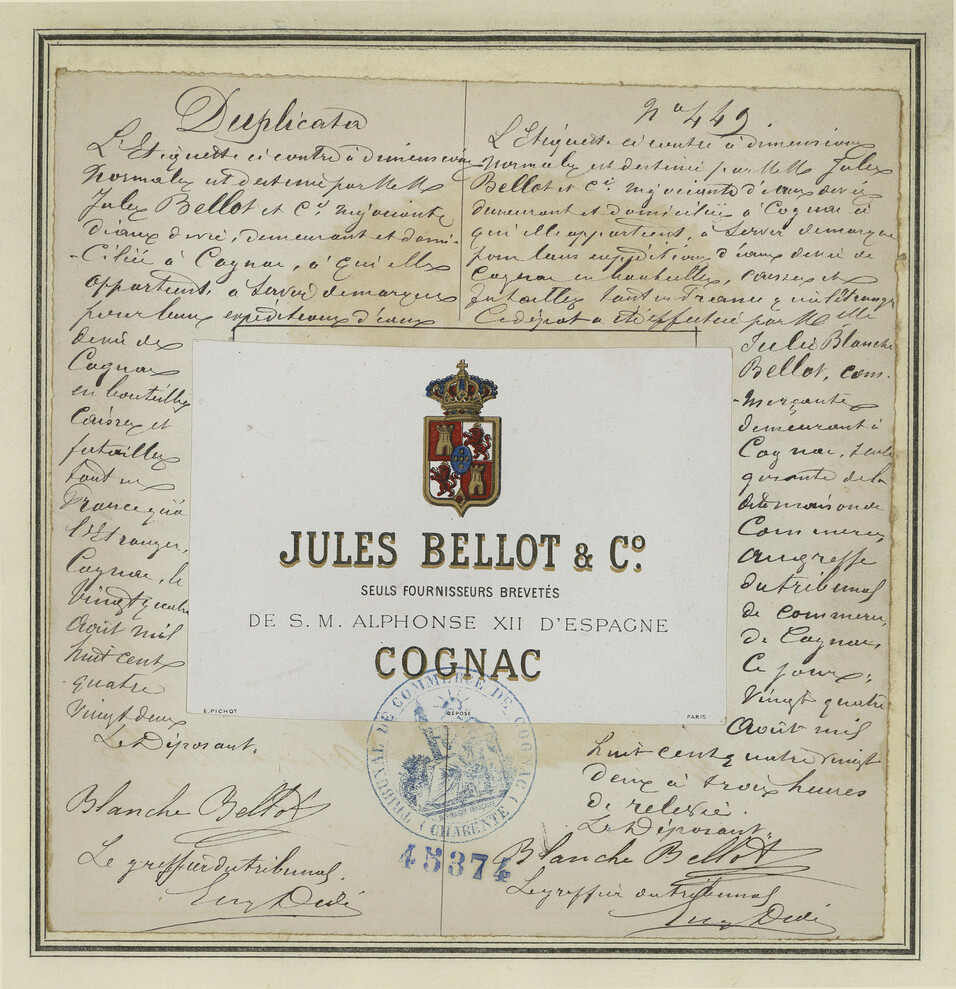 Duplicata
L'Etiquette ci contre à dimensions
Normales est destinée par MM
Jules Bellot et Cie négociants
d'eaux de vie, demeurant et domi-
-ciliés à Cognac, à qui elle
appartient, à servir de marque
pour leurs expéditions d'eaux
de vie de
Cognac
en bouteilles
caisses et
futailles
tant en
France qu'à
l'Etranger.
Cognac, le
Vingt quatre
Août mil
huit cent
quatre
Vingt deux
Le Déposant.
Blanche Bellot
Le greffier du tribunal.
No 449.
L'Etiquette ci contre à dimensions
Normales est destinée par MM Jules
Bellot et Cie négociants d'eaux de vie
demeurant et domiciliés à Cognac à
qui elle appartient, à servir de marque
pour leurs expéditions d'eaux de vie de
Cognac en bouteilles, caisses et
futailles tant en France qu'à l'étranger
Ce dépôt a été effectué par Melle
Julie Blanche
Bellot, com-
-merçante
demeurant à
Cognac, seule
gérante de la
dite maison de
Commerce,
au greffe
du tribunal
de commerce
de Cognac,
Ce jour,
Vingt quatre
Août mil
huit cent quatre vingt
deux à trois heures
de relevée.
Le Déposant.
Blanche Bellot
Le greffier du tribunal
JULES BELLOT & Co.
SEULS FOURNISSEURS BREVETÉS
DE S. M. ALPHONSE XII D'ESPAGNE
COGNAC
E. PICHOT
DÉPOSÉ
PARIS
TRIBUNAL DE COMMERCE DE COGNAC
(CHARENTE)
45374